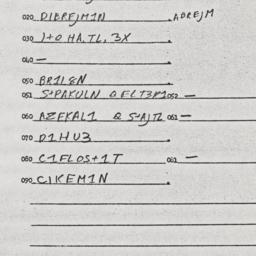 020 DIBREJM1N .ADREJM
030 J+O HA,TL, 3X .
040 — .
050 BR1L8N .
051 S+PAKULN & ELT3K1 052 —
060 AZEKAL1 & S+AJTL 061 —
070 D1HU3 .
080 C1FLOS+1T .081 —
090 CIKEM1N .